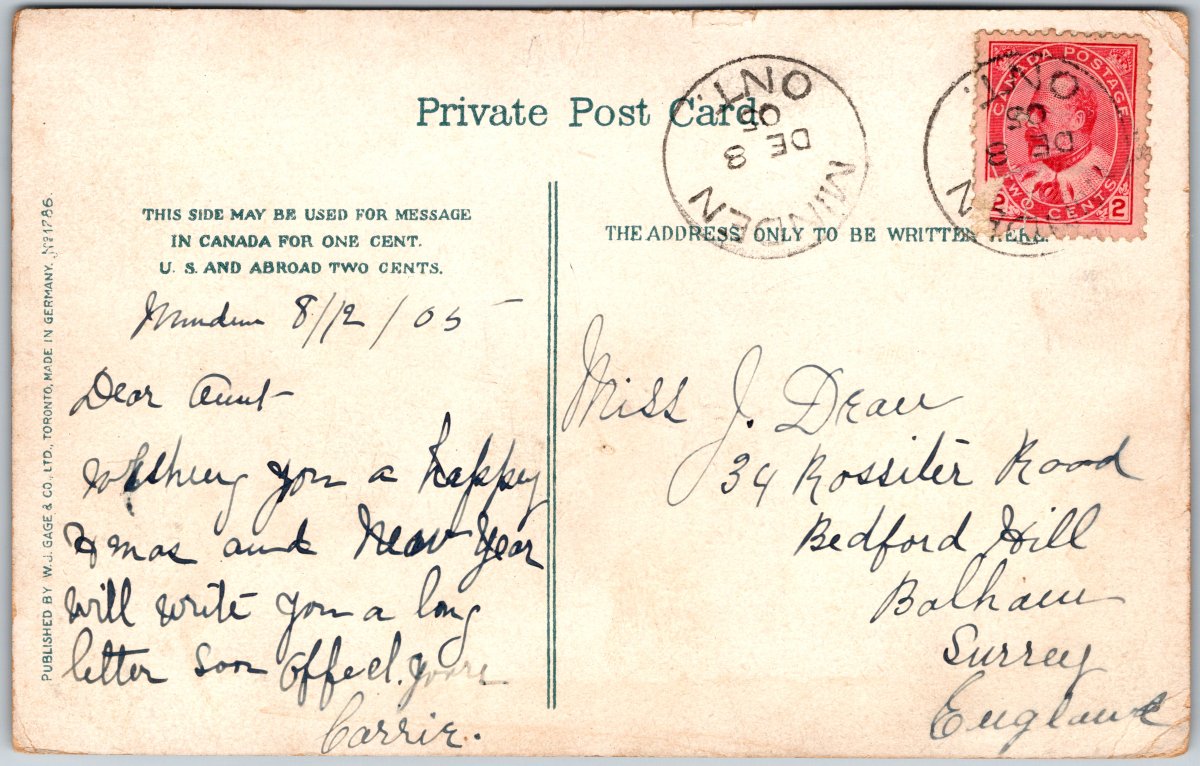 Private Post Card
THIS SIDE MAY BE USED FOR MESSAGE
IN CANADA FOR ONE CENT.
U. S. AND ABROAD TWO CENTS.
Minden 8/12/05
Dear Aunt
Wishing you a happy
Xmas and New Year
will write you a long
letter soon Affect. yours
Carrie.
PUBLISHED BY W. J. GAGE & CO., LTD., TORONTO, MADE IN GERMANY. No 1786.
THE ADDRESS ONLY TO BE WRITTEN HERE.
MINDEN
ONT.
DE 8
05
MINDEN
ONT.
DE 8
05
CANADA POSTAGE
2 TWO CENTS 2
Miss J. Dean
34 Rossiter Road
Bedford Hill
Balham
Surrey
England